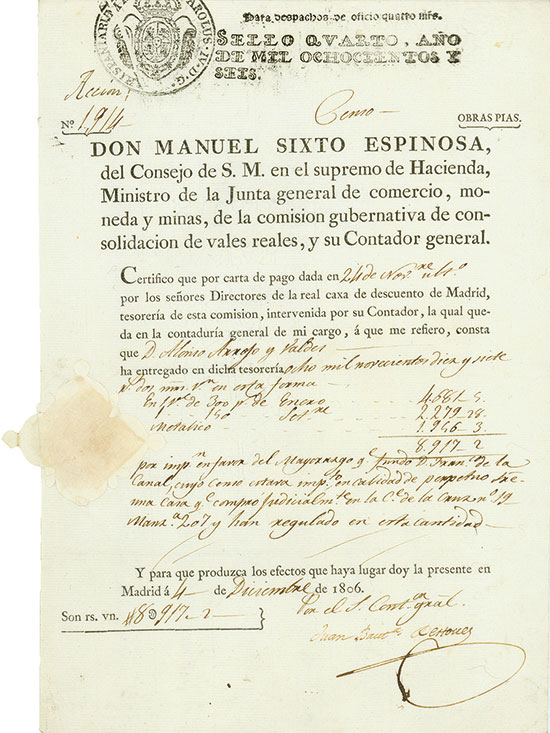 Para despachos de oficio quatro mrs.
SELLO QVARTO, AÑO
DE MIL OCHOCIENTOS Y
SEIS.
CAROLUS IV D G
Nº 1.914
Censo
OBRAS PIAS.
DON MANUEL SIXTO ESPINOSA,
del Consejo de S. M. en el supremo de Hacienda,
Ministro de la Junta general de comercio, mo-
neda y minas, de la comision gubernativa de con-
solidacion de vales reales, y su Contador general.
Certifico que por carta de pago dada en 24 de Nov.re ulto
por los señores Directores de la real caxa de descuento de Madrid,
tesorería de esta comision, intervenida por su Contador, la qual que-
da en la contaduría general de mi cargo, á que me refiero, consta
que D. Alonso Arrojo y Valdes
ha entregado en dicha tesorería ocho mil novecientos diez y siete
rs dos mrs vn en esta forma
En vs de 300 ps de Enero 4.681 5
150 Set.re 2.279 28
Metalico 1.956 3
8.917 2
por impn en favor del Mayorazgo q.e fundó D. Fran.co de la
Canal, cuyo censo estava imp.to en calidad de perpetuo sre
una Casa q.e compró Judicialm.te en la C.e de la Cruz nº 19
Manz.a 207 y han regulado en esta cantidad
Y para que produzca los efectos que haya lugar doy la presente en
Madrid á 4 de Diciembre de 1806.
Por el S. Cont.or gral.
Son rs. vn. 8917 2
Juan Baut.a